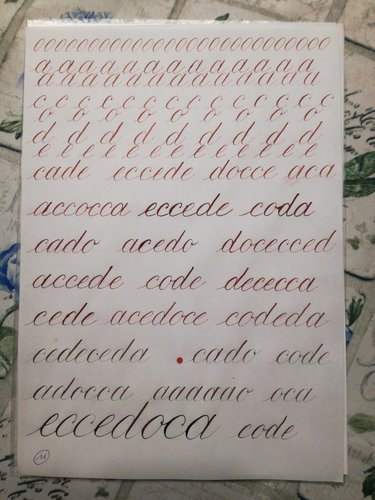 oooooooooooooooooooooooooo
a a a a a a a a a a a a
a a a a a a a a a a a a a
c c c c c c c c c c c c c
o o o o o o o
d d d d d d d d
e e e e e e e e e e e e
cade eccede docce aca
accocca eccede coda
cado acedo dococced
accede code dececca
cede acedoce codeda
cedeceda cado code
adocca aaaaao oca
eccedoca code